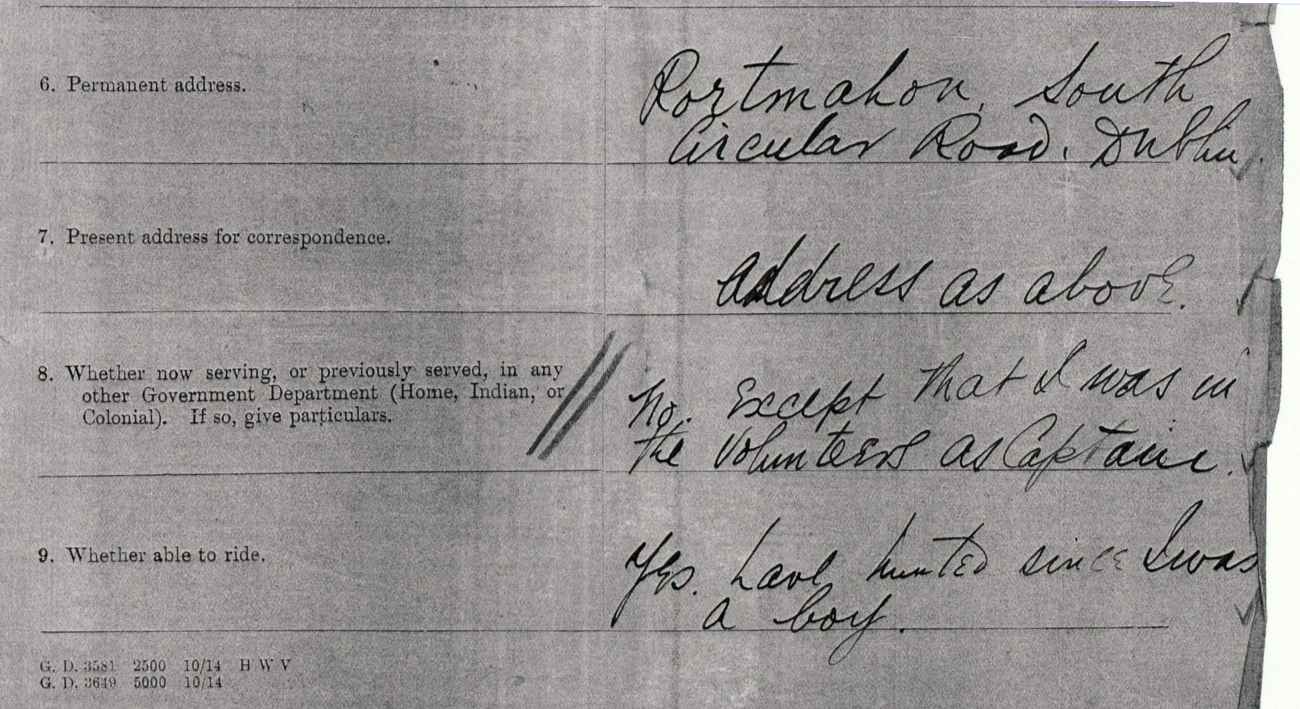 6. Permanent address.
Portmahon, South
Circular Road, Dublin.
7. Present address for correspondence.
Address as above.
8. Whether now serving, or previously served, in any
other Government Department (Home, Indian, or
Colonial). If so, give particulars.
No. Except that I was in
the Volunteers as Captain.
9. Whether able to ride.
Yes. have hunted since I was
a boy.
G. D. 3581 2500 10/14 H W V
G. D. 3649 5000 10/14